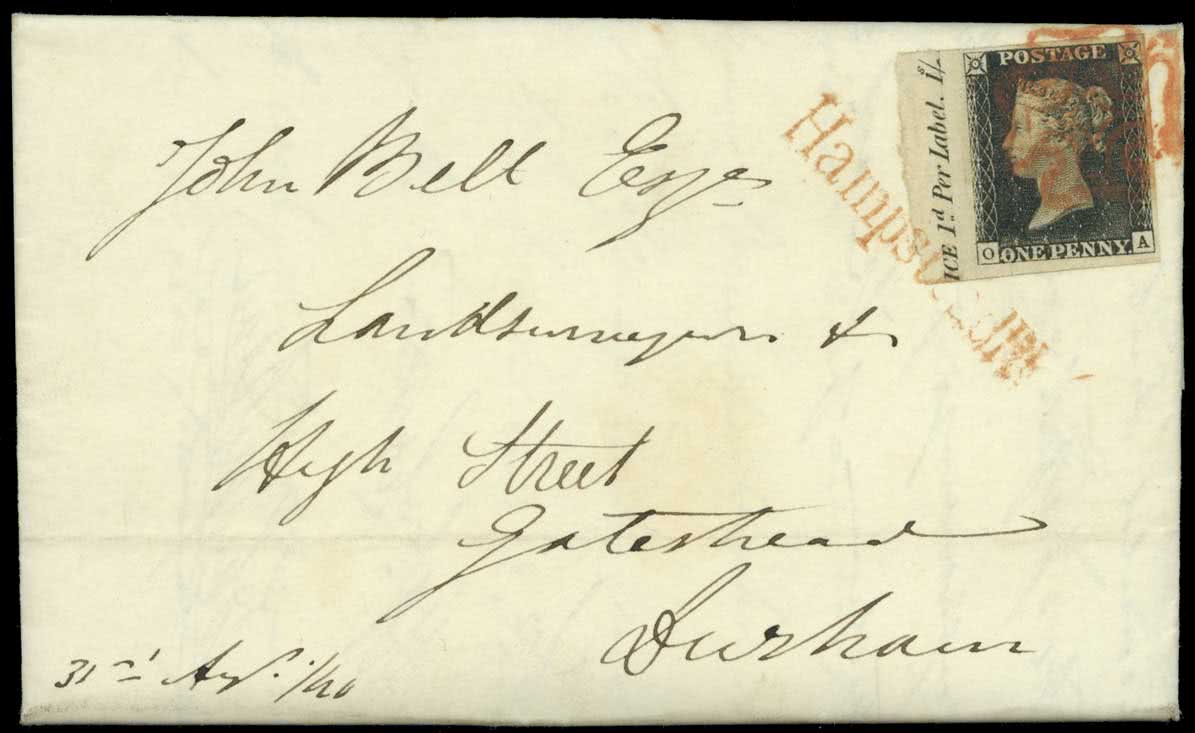 POSTAGE
ICE 1d Per Label. 1/-
O ONE PENNY A
Hampstead
John Bell Esqe
Landsurveyor &c
High Street
Gateshead
Durham
31st Augt. /40